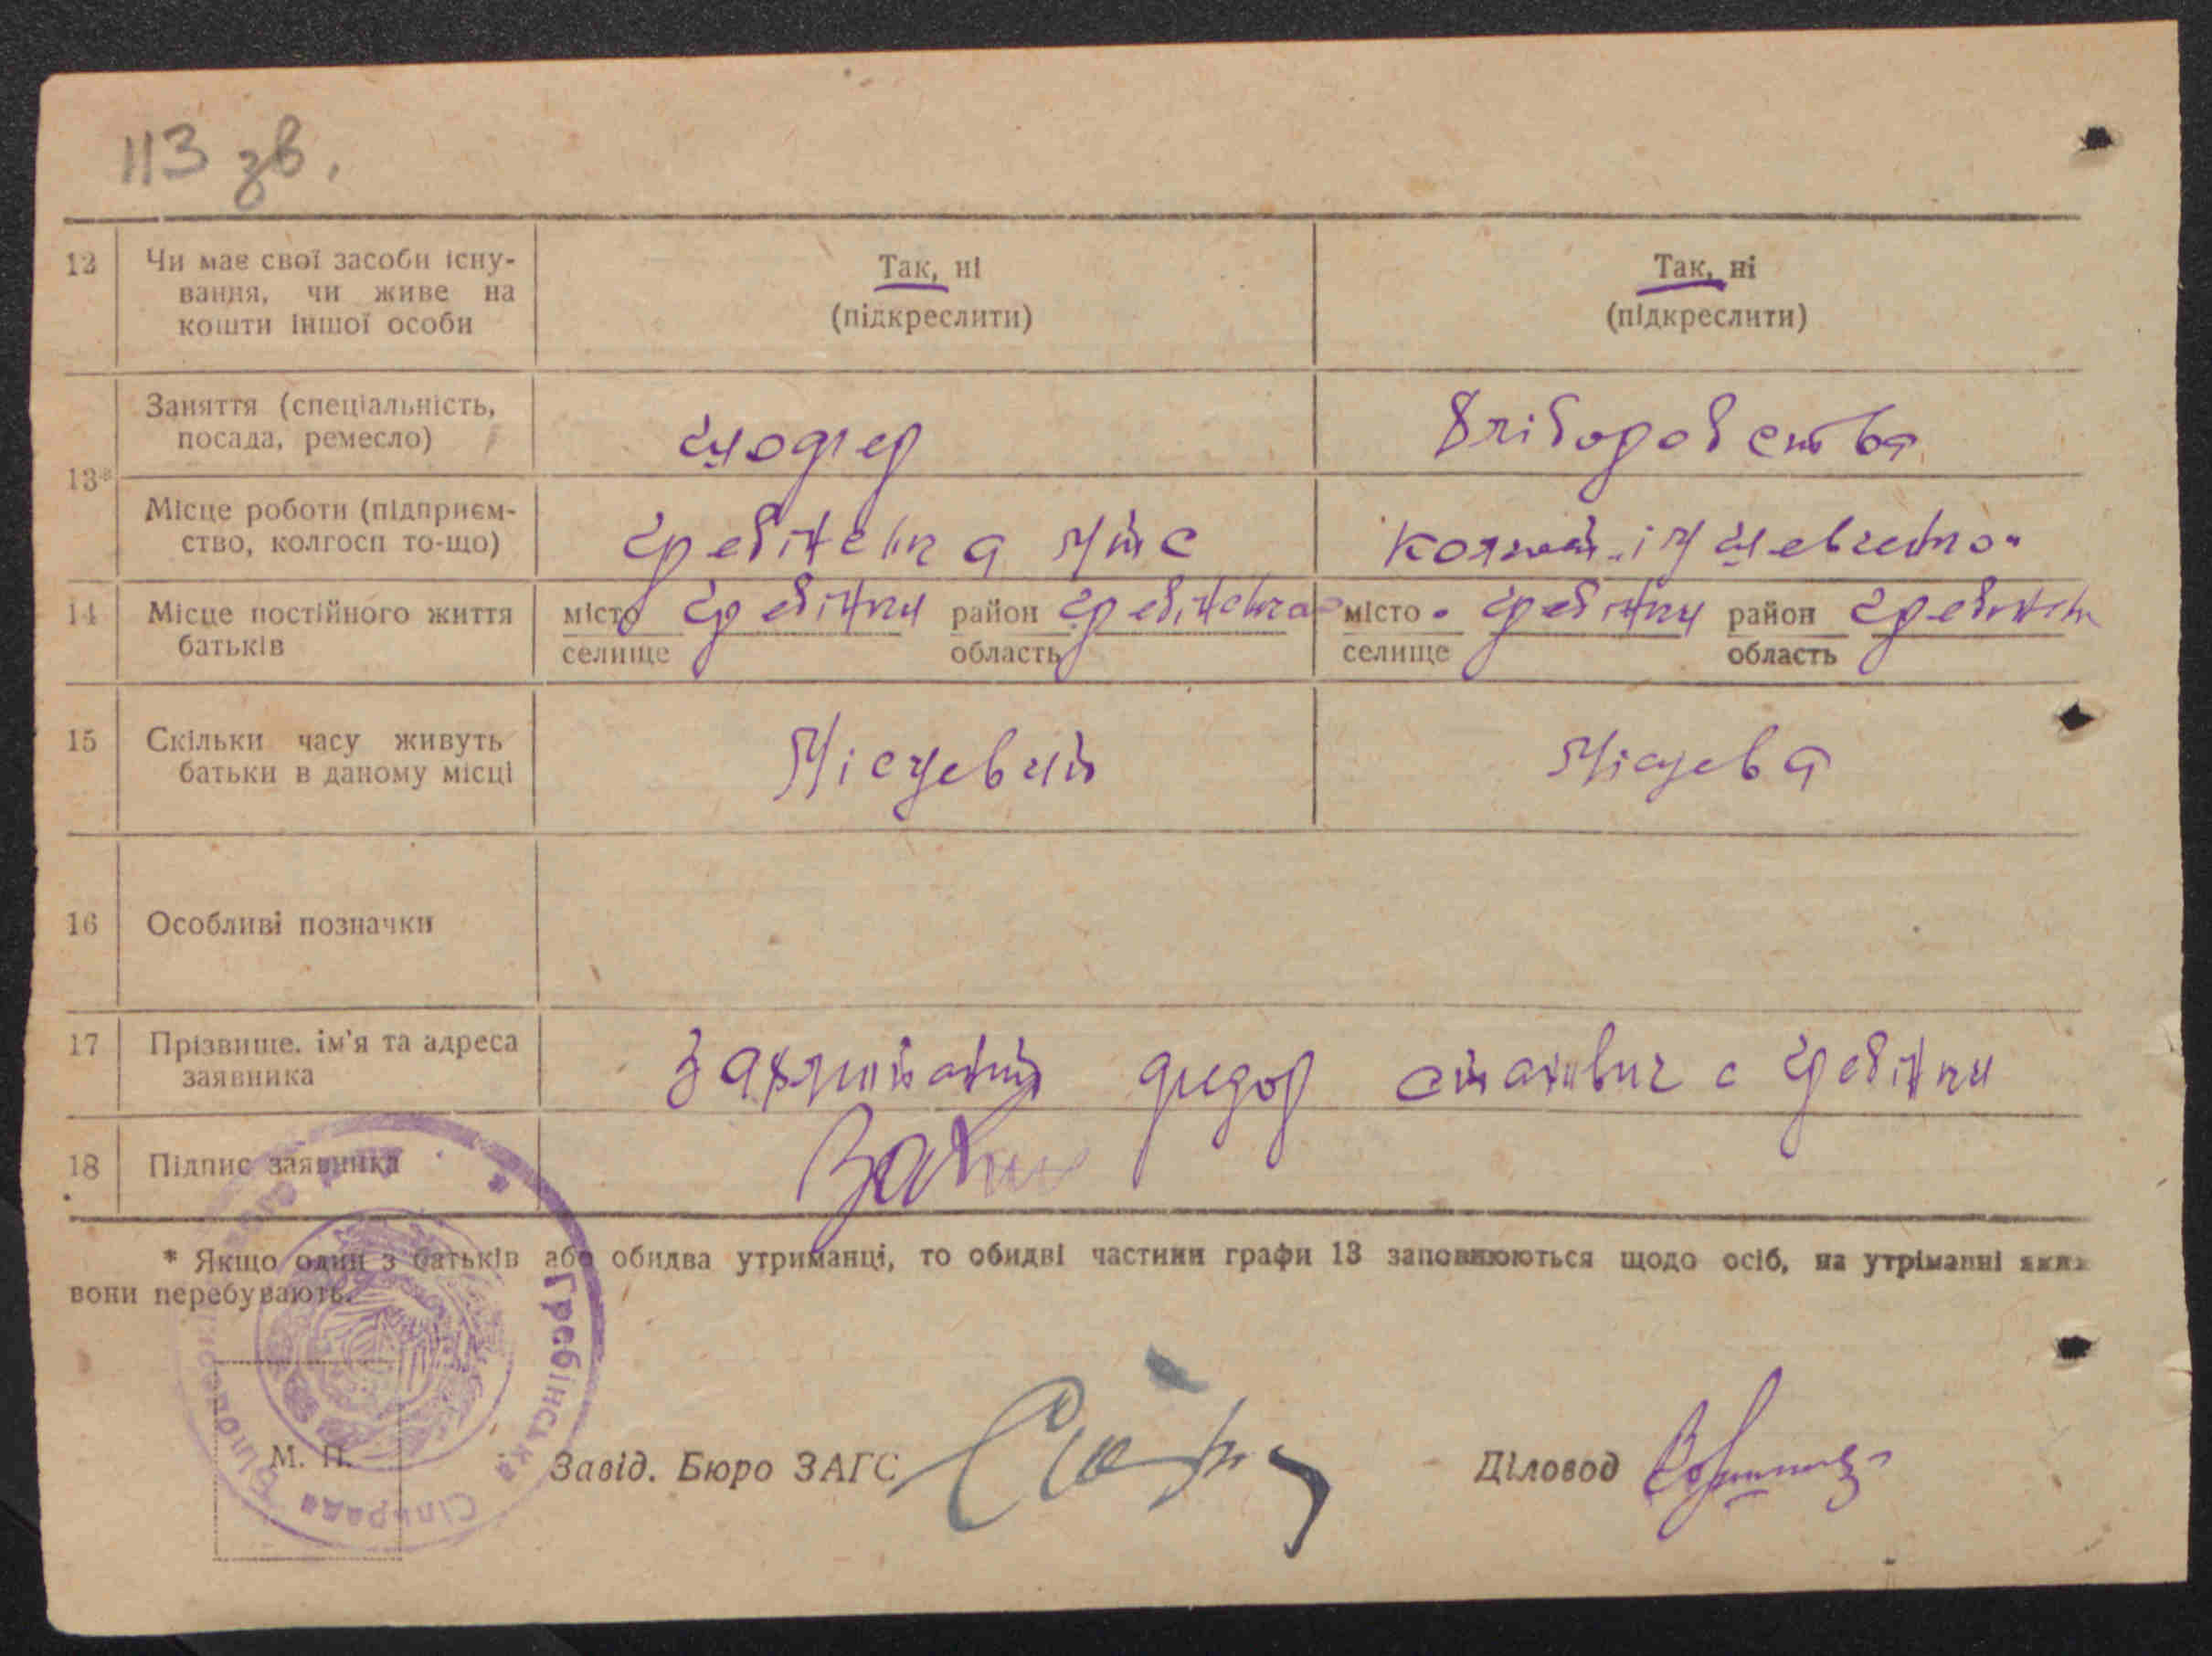 113 зв.
12 Чи має свої засоби існу- Так, ні Так, ні
вання, чи живе на (підкреслити) (підкреслити)
кошти іншої особи
Заняття (спеціальність, шофер Хліборобство
посада, ремесло)
13*
Місце роботи (підприєм- Гребінська МТС Колгосп ім Шевченко
ство, колгосп то-що)
14 Місце постійного життя місто Гребінки район Гребінська місто Гребінки район Гребінск
батьків селище область селище область
15 Скільки часу живуть Місцевий Місцева
батьки в даному місці
16 Особливі позначки
17 Прізвище, ім'я та адреса Федор с Гребінки
заявника
18 Підпис заявника
* Якщо один з батьків або обидва утриманці, то обидві частини графи 13 заповнюються щодо осіб, на утріманні яких
вони перебувають.
Гребінська Сільрада
М. П. Завід. Бюро ЗАГС Діловод